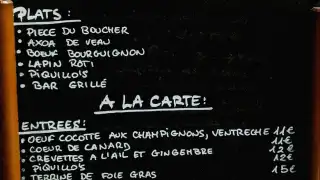 PLATS:
• PIECE DU BOUCHER
• AXOA DE VEAU
• BOEUF BOURGUIGNON
• LAPIN ROTI
• PIQUILLO'S
• BAR GRILLÉ
A LA CARTE:
ENTREES:
• OEUF COCOTTE AUX CHAMPIGNONS, VENTRECHE 11€
• COEUR DE CANARD 11€
• CREVETTES A L'AIL ET GINGEMBRE 12€
• PIQUILLO'S 12€
• TERRINE DE FOIE GRAS 15€